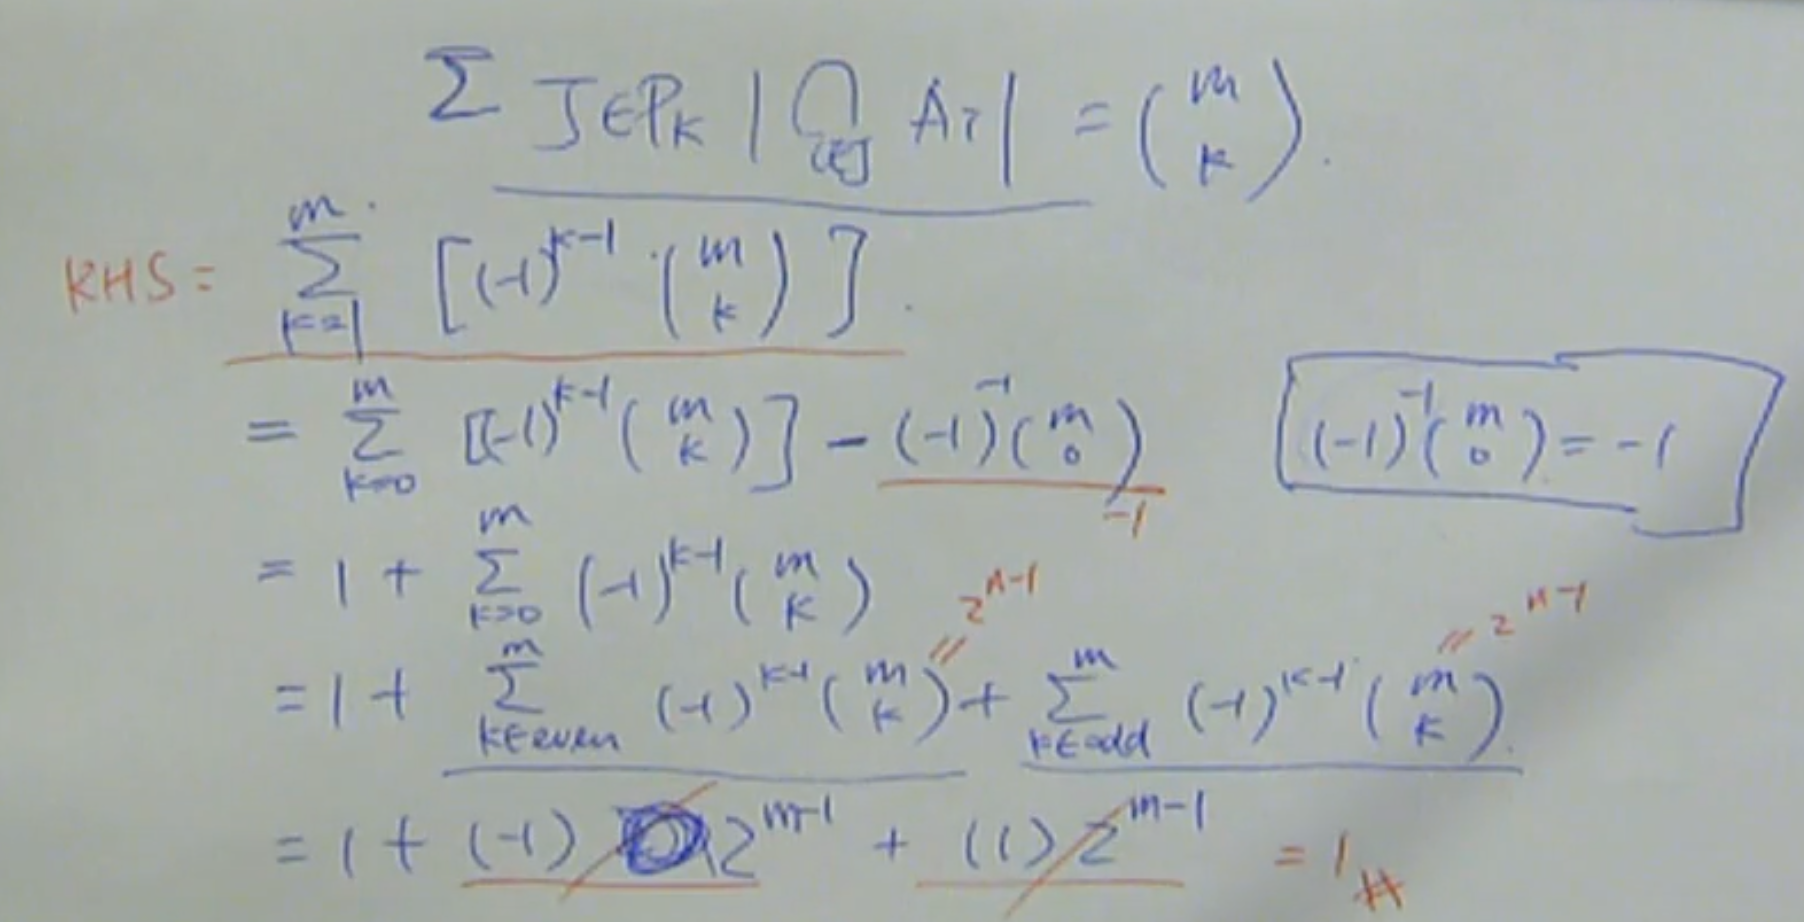 Σ J∈P_K |⋂_{i∈J} A_i| = (m k).
RHS = Σ_{k=1}^{m} [(-1)^{k-1} · (m k)].
= Σ_{k=0}^{m} [(-1)^{k-1} (m k)] - (-1)^{-1} (m 0)
-1
(-1)^{-1} (m 0) = -1
= 1 + Σ_{k=0}^{m} (-1)^{k-1} (m k)
= 2^{n-1}
= 2^{n-1}
= 1 + Σ_{k∈even}^{m} (-1)^{k-1} (m k) + Σ_{k∈odd}^{m} (-1)^{k-1} (m k).
= 1 + (-1) 2^{m-1} + (1) 2^{m-1} = 1 #